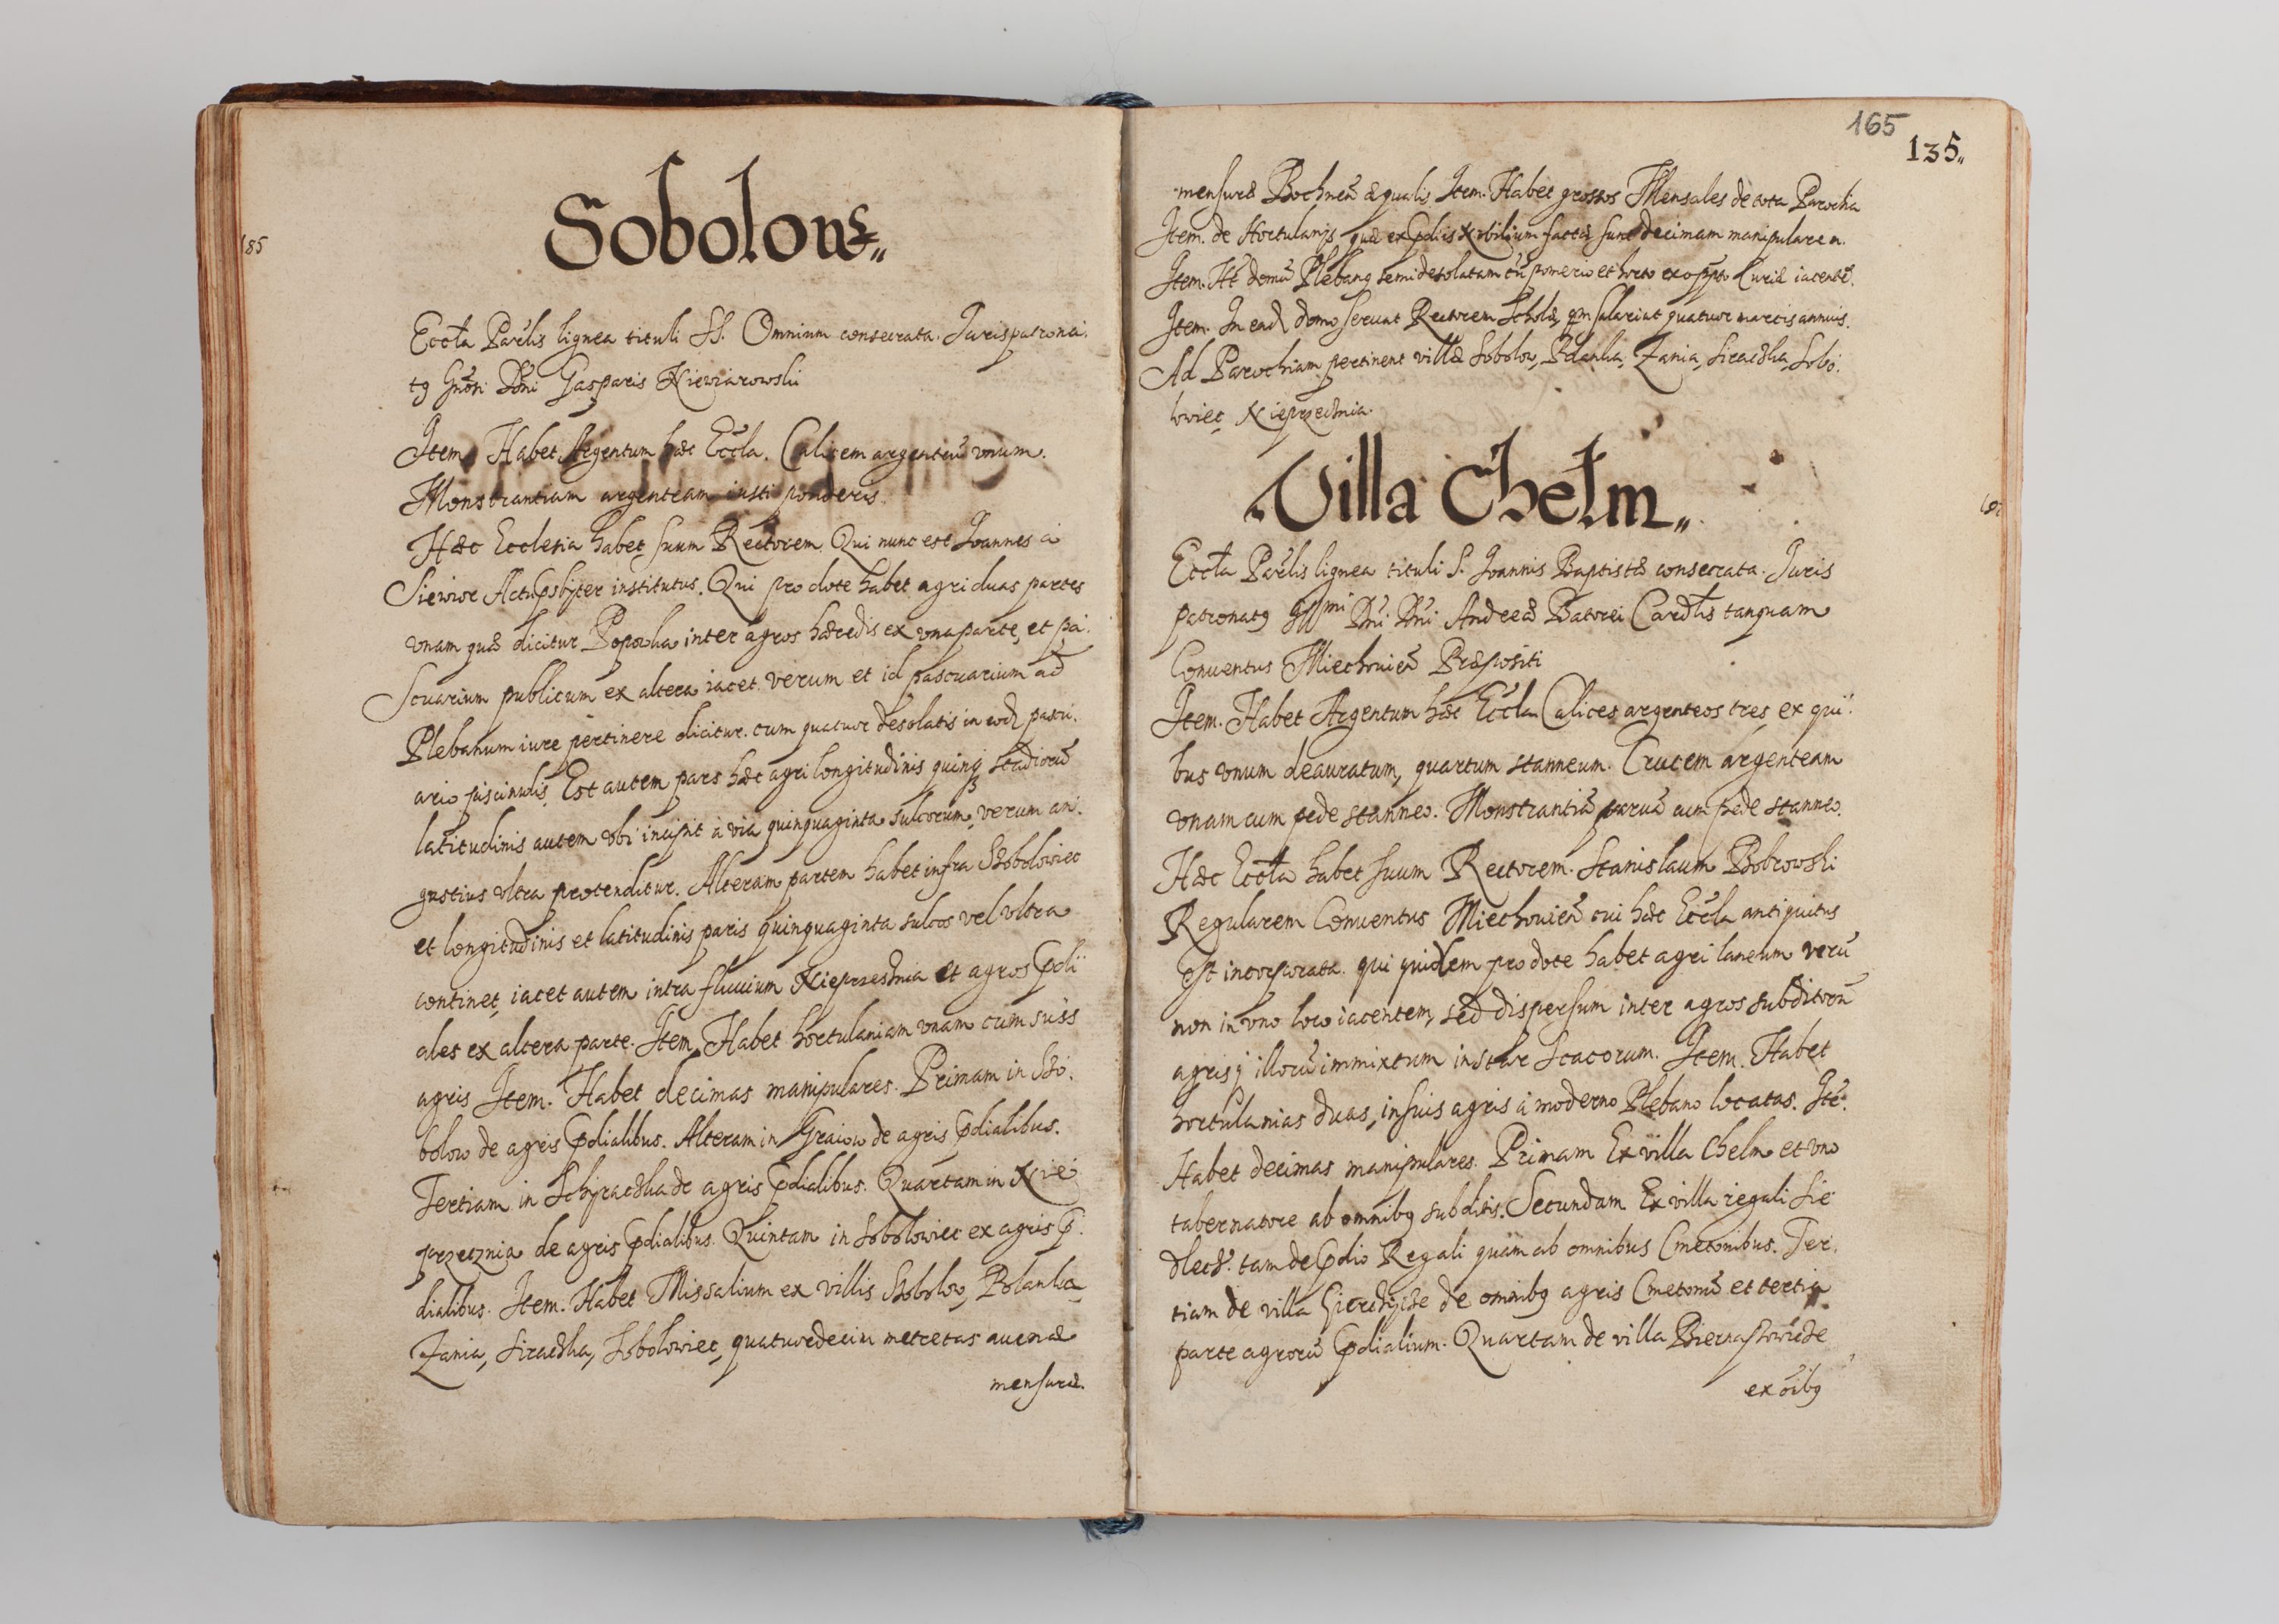 Sobolow
185
Eccła Parlis lignea tituli SS. Omnium consecrata. Jurispatrona:
tg Gnosi Dni Gasparis Niewiarowski
Item. Habet Argentum hæc Eccla. Calicem argenteū vnum.
Monstrantiam argenteam iusti ponderis
Hæc Ecclesia habet suum Rectorem. Qui nunc est Joannes à
Siewior Actu psbyter institutus. Qui pro dote habet agri duas partes
vnam quæ dicitur Popowka inter agros hæredis ex vna parte, et pa:
scuarium publicum ex altera iacet. verum et id pascuarium ad
Plebanum iure pertinere dicitur. cum quatuor desolatis in eod pascu:
ario piscinulis. Est autem pars hæc agri longitudinis quinq stadiorū
latitudinis autem vbi incipit à via quinquaginta sulcorum, verum an:
gustius vltra protenditur. Alteram partem habet infra Sobolowiec
et longitudinis et latitudinis paris quinquaginta sulcos vel vltra
continet, iacet autem intra fluuium Nieprzesnia et agros pdij
ales ex altera parte. Item. Habet hortulaniam vnam cum suis
agris Item. Habet decimas manipulares. Primam in So:
bolow de agris pdialibus. Alteram in Graiow de agris pdialibus.
Tertiam in Schiraczka de agris pdialibus. Quartam in Nie
przecznia de agris pdialibus. Quintam in Sobolowiec ex agris p:
dialibus. Item. Habet Missalium ex villis Sobolow, Polanka,
Zania, Siraczka, Sobolowiec, quatuordecim metretas auenæ
mensuræ.
165
135
mensuræ Bochneñ æqualis. Item. Habet grossos Mensales de tota Parochia
Item. de Hortulanijs quæ ex pdijs Nobilium factæ sunt decimam manipularem.
Item. Ht domū Plebang semidesolatam cū pomerio et horto ex oppto Curiæ iacentē.
Item. In ead domo seruat Rectorem Scholæ, qm salariat quatuor marcis annuis.
Ad Parochiam pertinent villæ Sobolow, Polanka, Zania, Siraczka, Sobo:
lowiec, Nieprzecznia.
Villa Chełm
Eccła Parlis lignea tituli S. Joannis Baptistæ consecrata. Juris
patronatg Illmi Dni Dni Andreæ Batorei Cardlis tanquam
Conuentus Miechouieñ Præpositi
Item. Habet Argentum hæc Eccla Calices argenteos tres, ex qui:
bus vnum deauratum, quartum stanneum. Crucem argenteam
vnam cum pede stanneo. Monstrantiā paruā cum pede stanneo.
Hæc Eccła habet suum Rectorem. Stanislaum Bobrowski
Regularem Conuentus Miechouieñ cui hæc Eccla antiquitus
est incorporata. qui quidem pro dote habet agri laneum verū
non in vno loco iacentem, sed dispersum inter agros subditorū
agrisq illorū immixtum instar Scacorum. Item. Habet
hortulanias duas, in suis agris à moderno Plebano locatas. Itē.
Habet decimas manipulares. Primam Ex villa Chelm et vno
tabernatore ab omnibg subditis. Secundam Ex villa regali Sie
dlecz. tam de pdio Regali quàm ab omnibus Cmetonibus. Ter:
tiam de villa de omnibg agris Cmetonū et tertia
parte agrorū pdialium. Quartam de villa
ex oibg